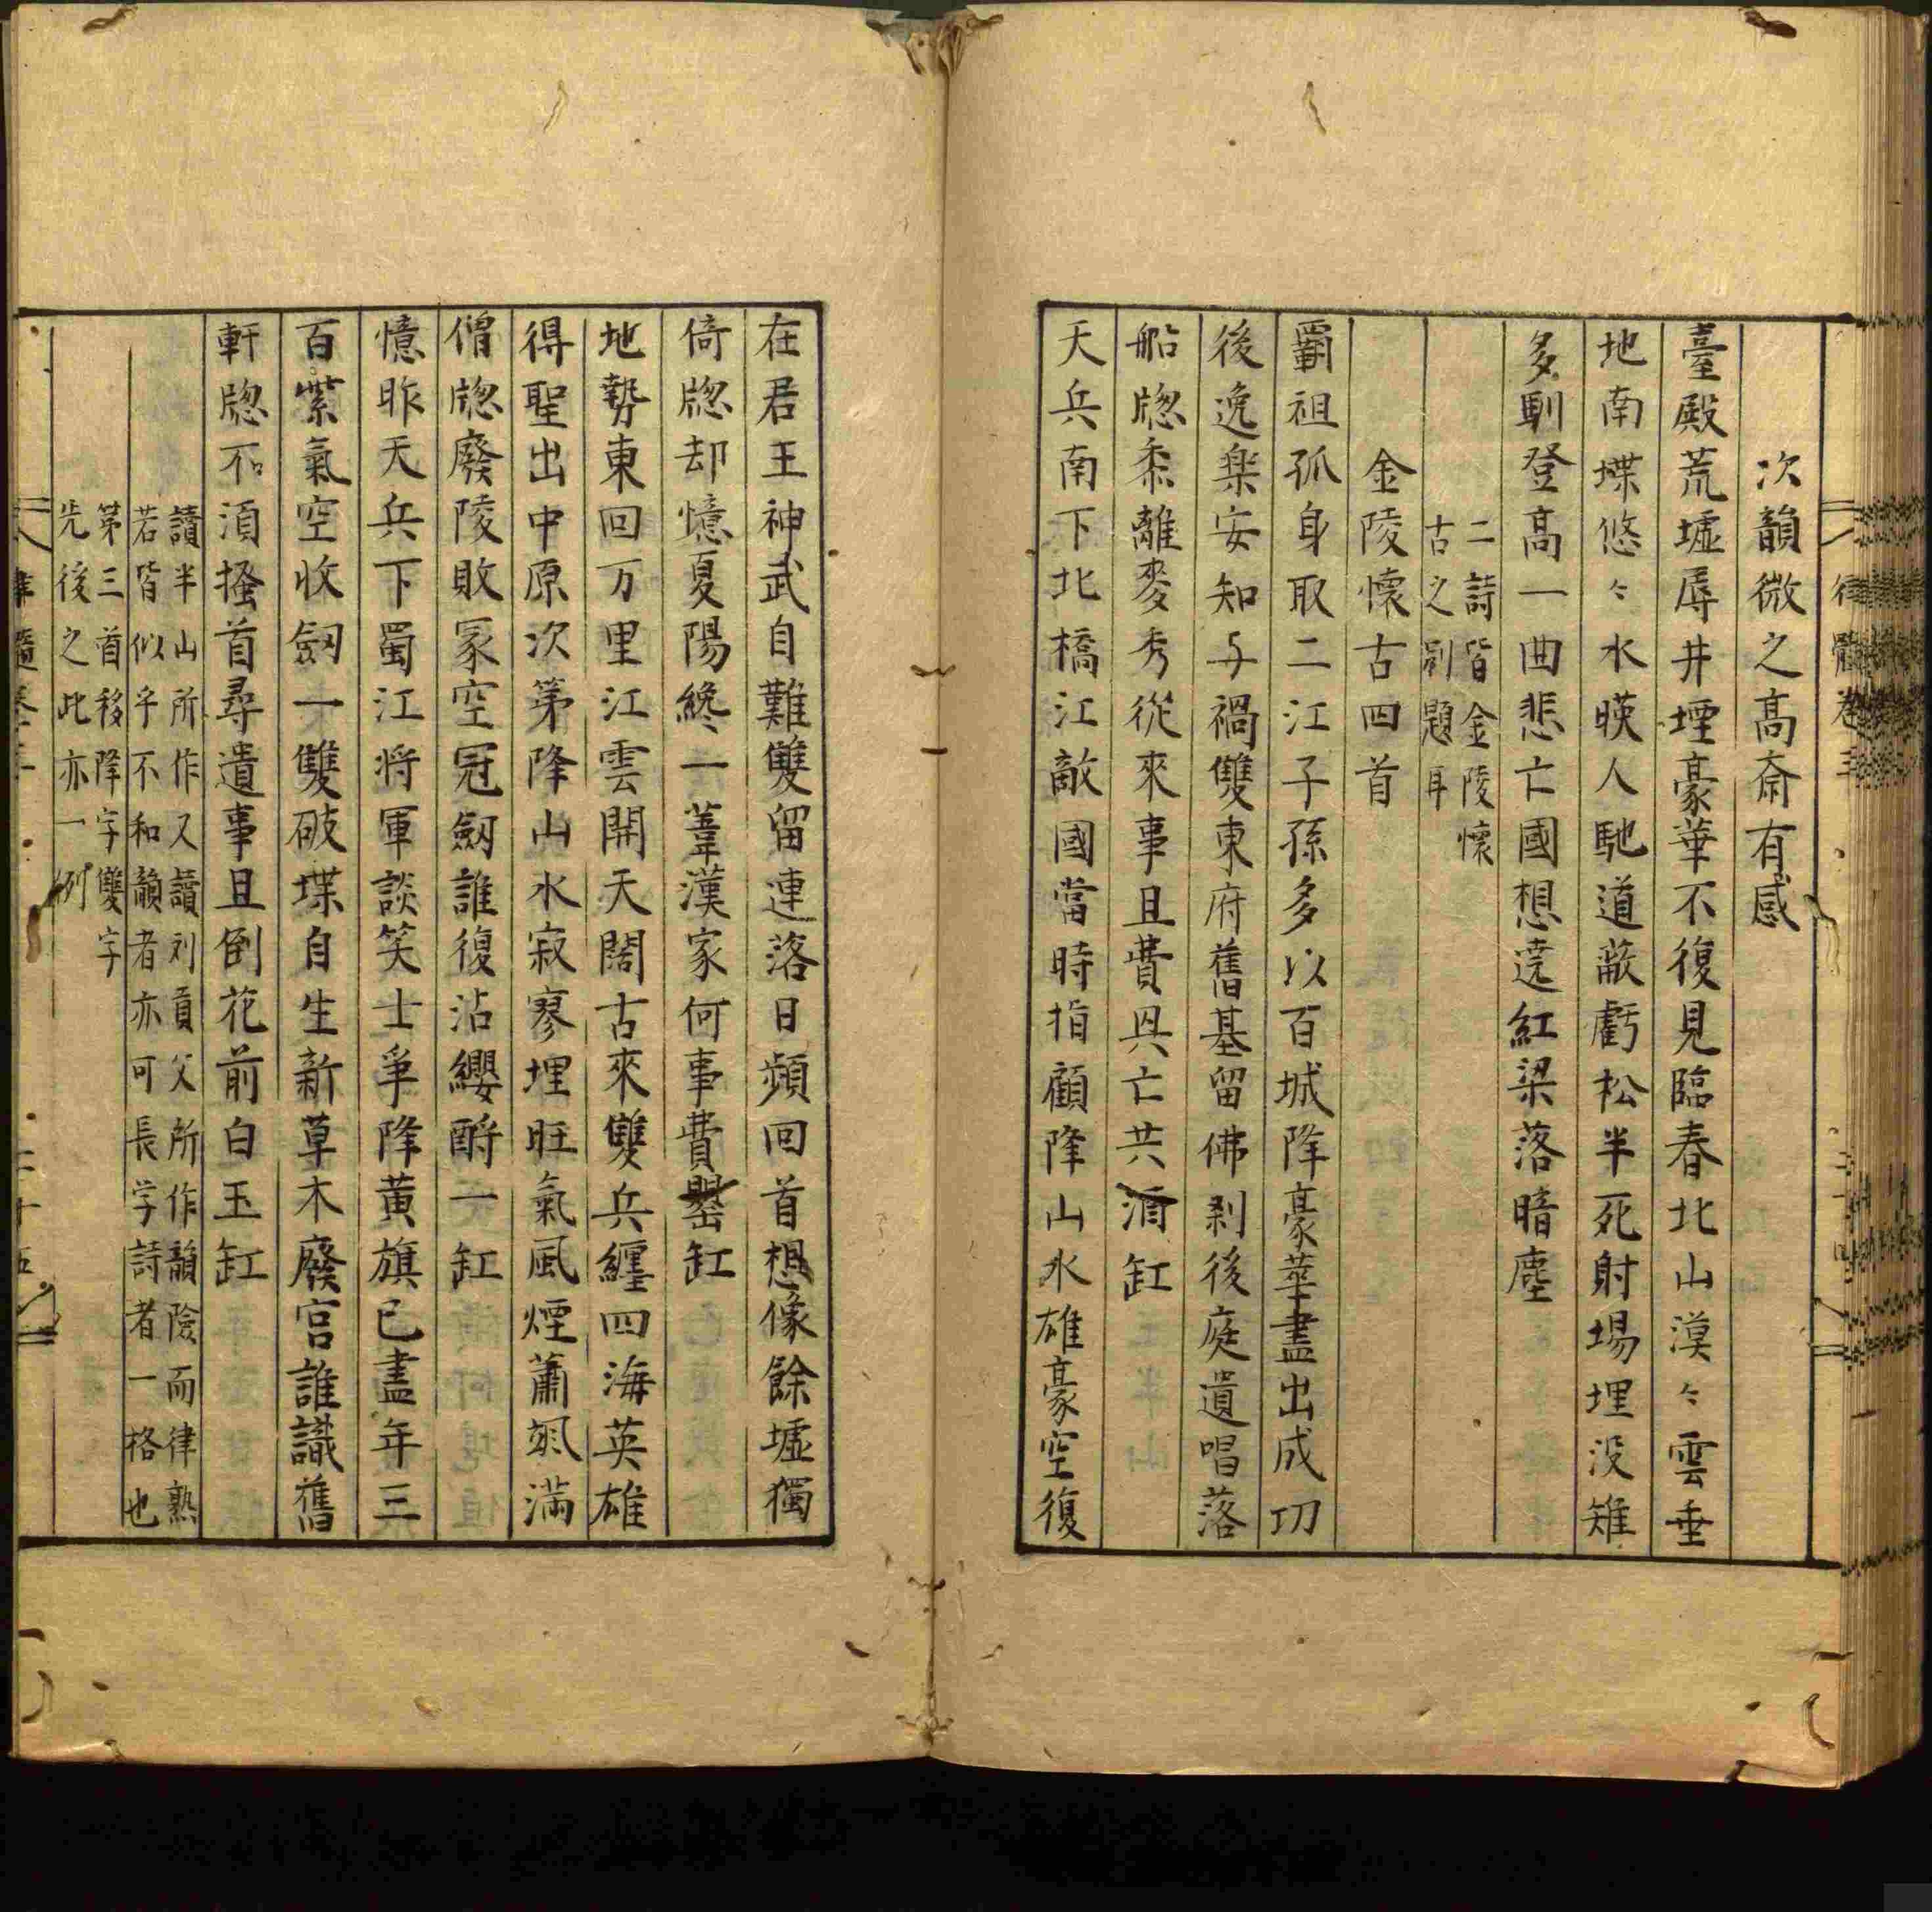 律髓卷三
次韻微之高齋有感
臺殿荒墟辱井堙豪華不復見臨春北山漠〻雲垂
地南堞悠〻水暎人馳道蔽虧松半死射場埋没雉
多馴登高一曲悲亡國想遶紅梁落暗塵
二詩皆金陵懷
古之別題耳
金陵懷古四首
覇祖孤身取二江子孫多以百城降豪華盡出成功
後逸楽安知与禍雙東府舊基留佛剎後庭遺唱落
船牎黍離麥秀從來事且費㒷亡共酒缸
天兵南下北橋江敵國當時指顧降山水雄豪空復
在君王神武自難雙留連落日頻回首想像餘墟獨
倚牎却憶夏陽纔一葦漢家何事費罌缸
地勢東回万里江雲開天闊古來雙兵纏四海英雄
得聖出中原次第降山水寂寥埋旺氣風煙蕭颯滿
僧牎廢陵敗冢空冠劒誰復沾纓酹一缸
憶昨天兵下蜀江将軍談笑士爭降黄旗已盡年三
百紫氣空收劒一雙破堞自生新草木廢宮誰識舊
軒牎不湏搔首尋遺事且倒花前白玉缸
讀半山所作又讀刘貢父所作韻險而律熟
若皆似乎不和韻者亦可長学詩者一格也
第三首移降字雙字
先後之此亦一例
律髓卷三 二十五